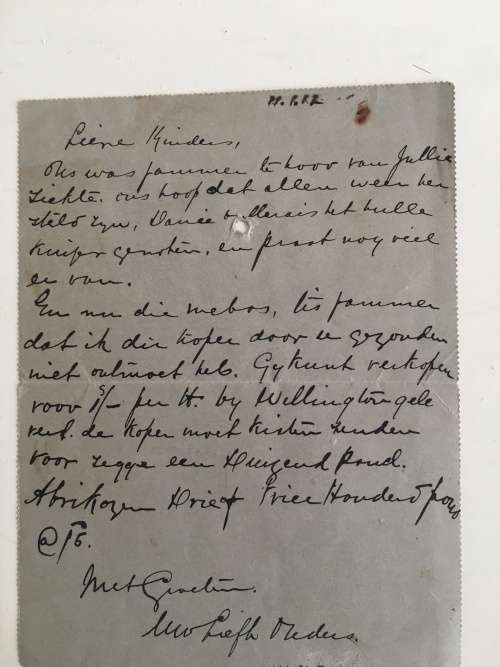 Lieve Kinders,
Ons was jammer te hoor van Jullie
ziekte. ons hoop dat allen weer her
steld zyn, Danie & Marais het hulle
kuijer genoten, en praat nog viel
er van.
En nu die mebos, tis jammer
dat ik die koper door u gezonden
niet ontmoet heb. Gy kunt verkopen
voor 1/- per lb. by Wellington gele
verd. de koper moet kisten zenden
voor zegge een Duizend Pond.
Abrikozen Drie Honderd
@
Met Groeten.
Uw Liefh Ouders.